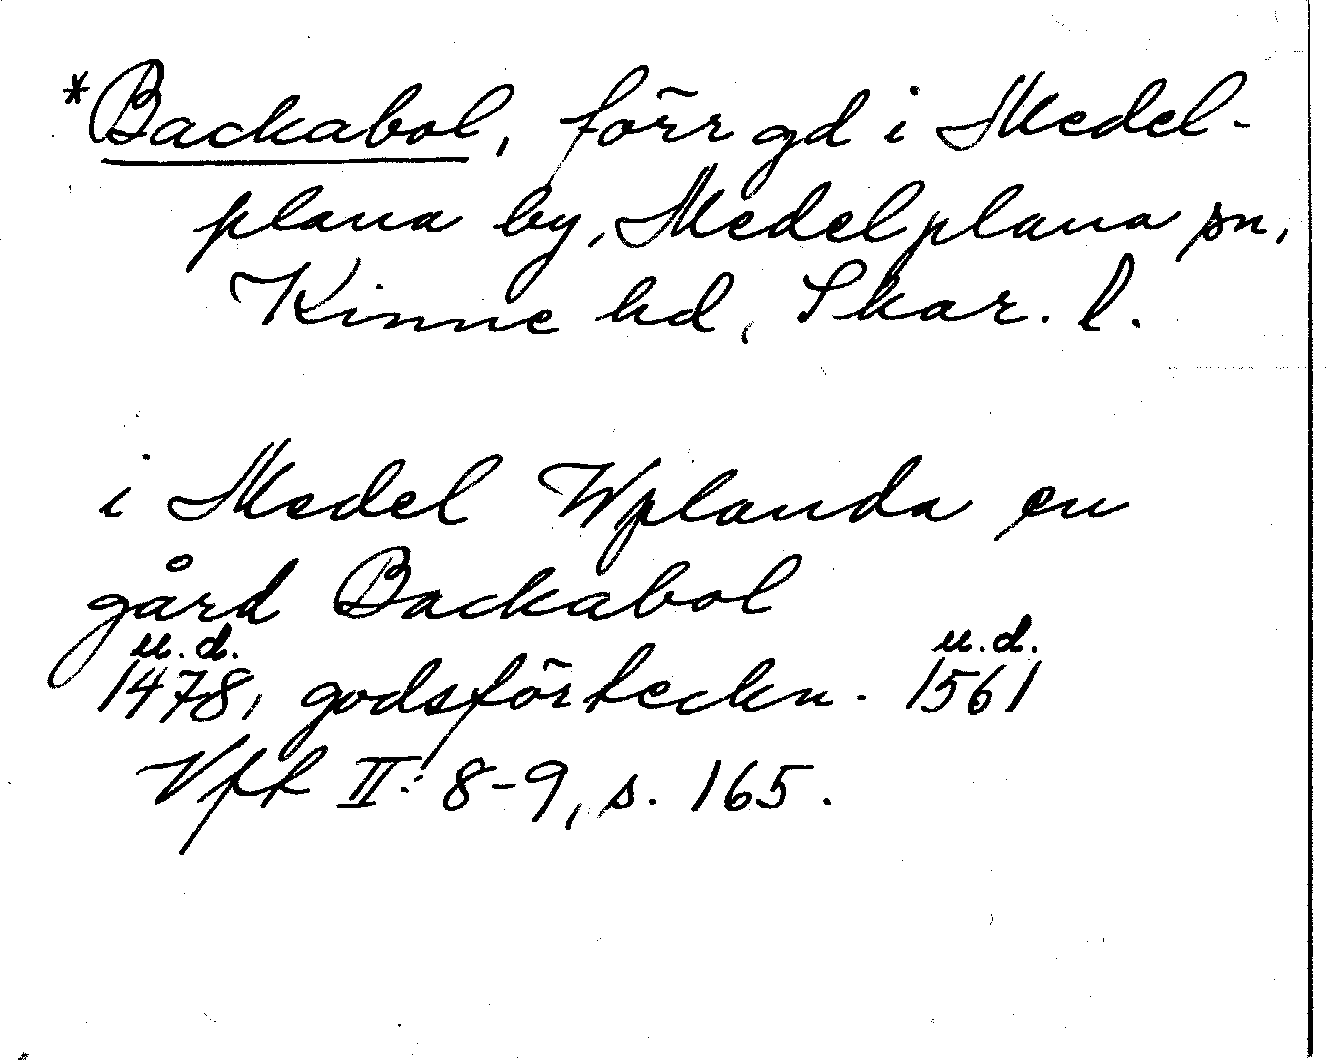 *Backabol, förr gd i Medel-
plana by, Medelplana sn,
Kinne hd, Skar. l.
i Medel Wplanda en
gård Backabol
u.d. u.d.
1478, godsförteckn. 1561
Vfk II: 8-9, s. 165.